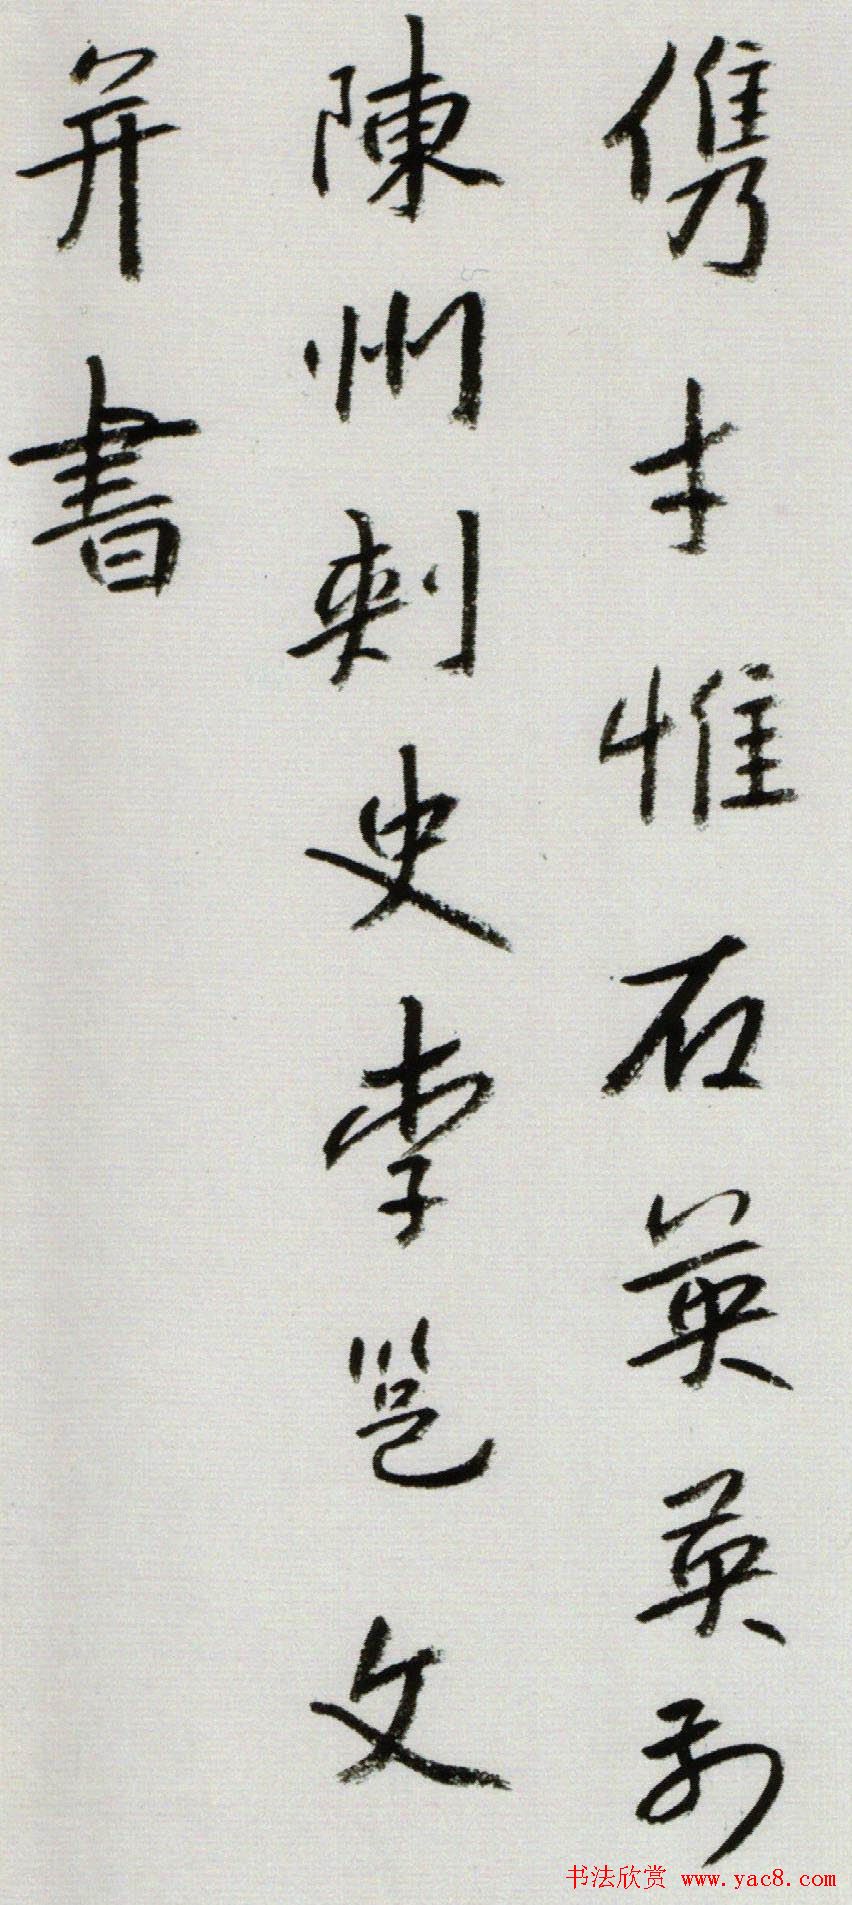 㑺才惟石英英前
陳州刺史李邕文
并書
书法欣赏 www.yac8.com